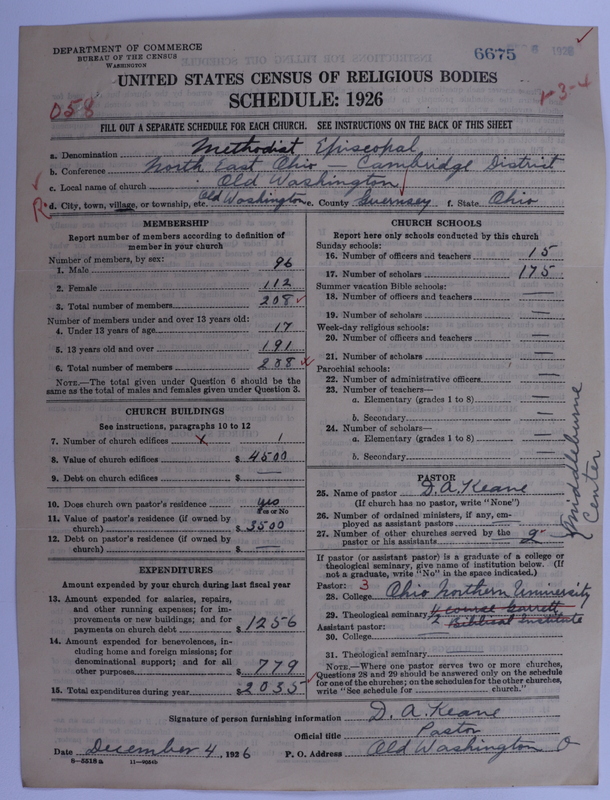 DEPARTMENT OF COMMERCE
BUREAU OF THE CENSUS
WASHINGTON
6675
1926
UNITED STATES CENSUS OF RELIGIOUS BODIES
SCHEDULE: 1926
058
1-3-4
FILL OUT A SEPARATE SCHEDULE FOR EACH CHURCH. SEE INSTRUCTIONS ON THE BACK OF THIS SHEET
a. Denomination Methodist Episcopal
b. Conference North East Ohio - Cambridge District
c. Local name of church Old Washington
R d. City, town, village, or township, etc. Old Washington e. County Guernsey f. State Ohio
MEMBERSHIP
Report number of members according to definition of
member in your church
Number of members, by sex:
1. Male 96
2. Female 112
3. Total number of members 208
Number of members under and over 13 years old:
4. Under 13 years of age 17
5. 13 years old and over 191
6. Total number of members 208
NOTE.—The total given under Question 6 should be the
same as the total of males and females given under Question 3.
CHURCH BUILDINGS
See instructions, paragraphs 10 to 12
7. Number of church edifices x 1
8. Value of church edifices $ 4500
9. Debt on church edifices $ —
10. Does church own pastor's residence yes
Yes or No
11. Value of pastor's residence (if owned by
church) $ 3500
12. Debt on pastor's residence (if owned by
church) $ —
EXPENDITURES
Amount expended by your church during last fiscal year
13. Amount expended for salaries, repairs,
and other running expenses; for im-
provements or new buildings; and for
payments on church debt $ 1256
14. Amount expended for benevolences, in-
cluding home and foreign missions; for
denominational support; and for all
other purposes $ 779
15. Total expenditures during year $ 2035
CHURCH SCHOOLS
Report here only schools conducted by this church
Sunday schools:
16. Number of officers and teachers 15
17. Number of scholars 175
Summer vacation Bible schools:
18. Number of officers and teachers —
19. Number of scholars —
Week-day religious schools:
20. Number of officers and teachers —
21. Number of scholars —
Parochial schools:
22. Number of administrative officers —
23. Number of teachers—
a. Elementary (grades 1 to 8) —
b. Secondary —
24. Number of scholars—
a. Elementary (grades 1 to 8) —
b. Secondary —
PASTOR
25. Name of pastor D. A. Keane
(If church has no pastor, write "None")
26. Number of ordained ministers, if any, em-
ployed as assistant pastors —
27. Number of other churches served by the
pastor or his assistants 2
Middlebourne
Center
If pastor (or assistant pastor) is a graduate of a college or
theological seminary, give name of institution below. (If
not a graduate, write "No" in the space indicated.)
Pastor: 3
28. College Ohio Northern University
29. Theological seminary 4 course Garrett
2 Biblical Institute
Assistant pastor:
30. College
31. Theological seminary
NOTE.—Where one pastor serves two or more churches,
Questions 28 and 29 should be answered only on the schedule
for one of the churches; on the schedules for the other churches,
write "See schedule for church."
Signature of person furnishing information D. A. Keane
Official title Pastor
Date December 4, 1926 P. O. Address Old Washington O
8—5518 a